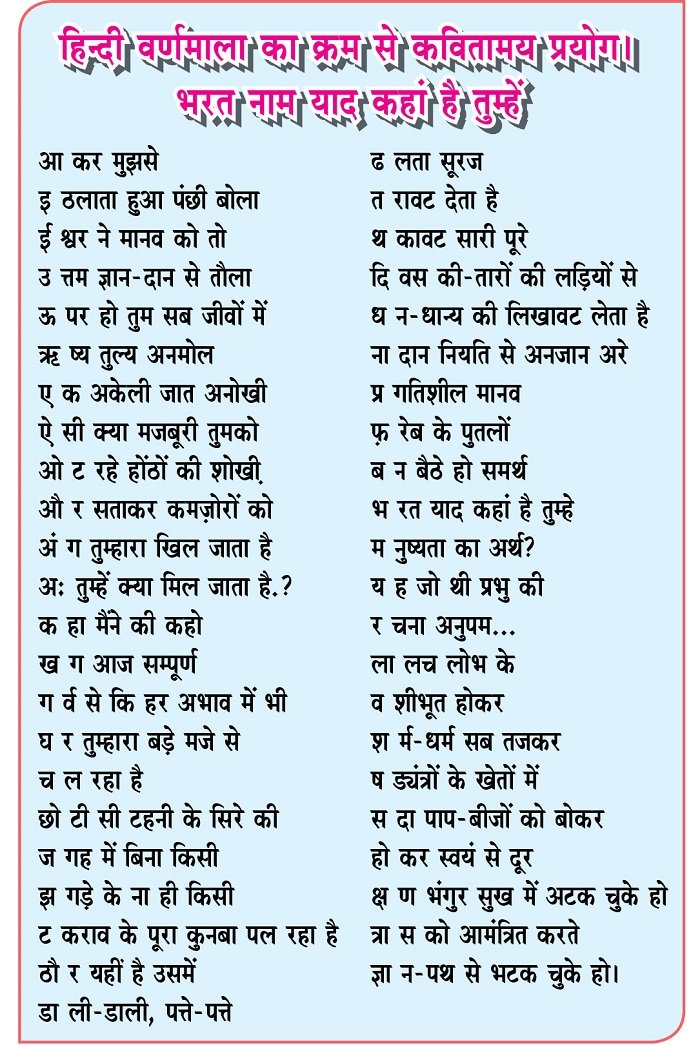 हिन्दी वर्णमाला का क्रम से कवितामय प्रयोग।
भरत नाम याद कहां है तुम्हें
आ कर मुझसे
इ ठलाता हुआ पंछी बोला
ई श्वर ने मानव को तो
उ त्तम ज्ञान-दान से तौला
ऊ पर हो तुम सब जीवों में
ऋ ष्य तुल्य अनमोल
ए क अकेली जात अनोखी
ऐ सी क्या मजबूरी तुमको
ओ ट रहे होंठों की शोखी़
औ र सताकर कमज़ोरों को
अं ग तुम्हारा खिल जाता है
अः तुम्हें क्या मिल जाता है.?
क हा मैंने की कहो
ख ग आज सम्पूर्ण
ग र्व से कि हर अभाव में भी
घ र तुम्हारा बड़े मजे से
च ल रहा है
छो टी सी टहनी के सिरे की
ज गह में बिना किसी
झ गड़े के ना ही किसी
ट कराव के पूरा कुनबा पल रहा है
ठौ र यहीं है उसमें
डा ली-डाली, पत्ते-पत्ते
ढ लता सूरज
त रावट देता है
थ कावट सारी पूरे
दि वस की-तारों की लड़ियों से
ध न-धान्य की लिखावट लेता है
ना दान नियति से अनजान अरे
प्र गतिशील मानव
फ़ रेब के पुतलों
ब न बैठे हो समर्थ
भ रत याद कहां है तुम्हे
म नुष्यता का अर्थ?
य ह जो थी प्रभु की
र चना अनुपम...
ला लच लोभ के
व शीभूत होकर
श र्म-धर्म सब तजकर
ष ड्यंत्रों के खेतों में
स दा पाप-बीजों को बोकर
हो कर स्वयं से दूर
क्ष ण भंगुर सुख में अटक चुके हो
त्रा स को आमंत्रित करते
ज्ञा न-पथ से भटक चुके हो।